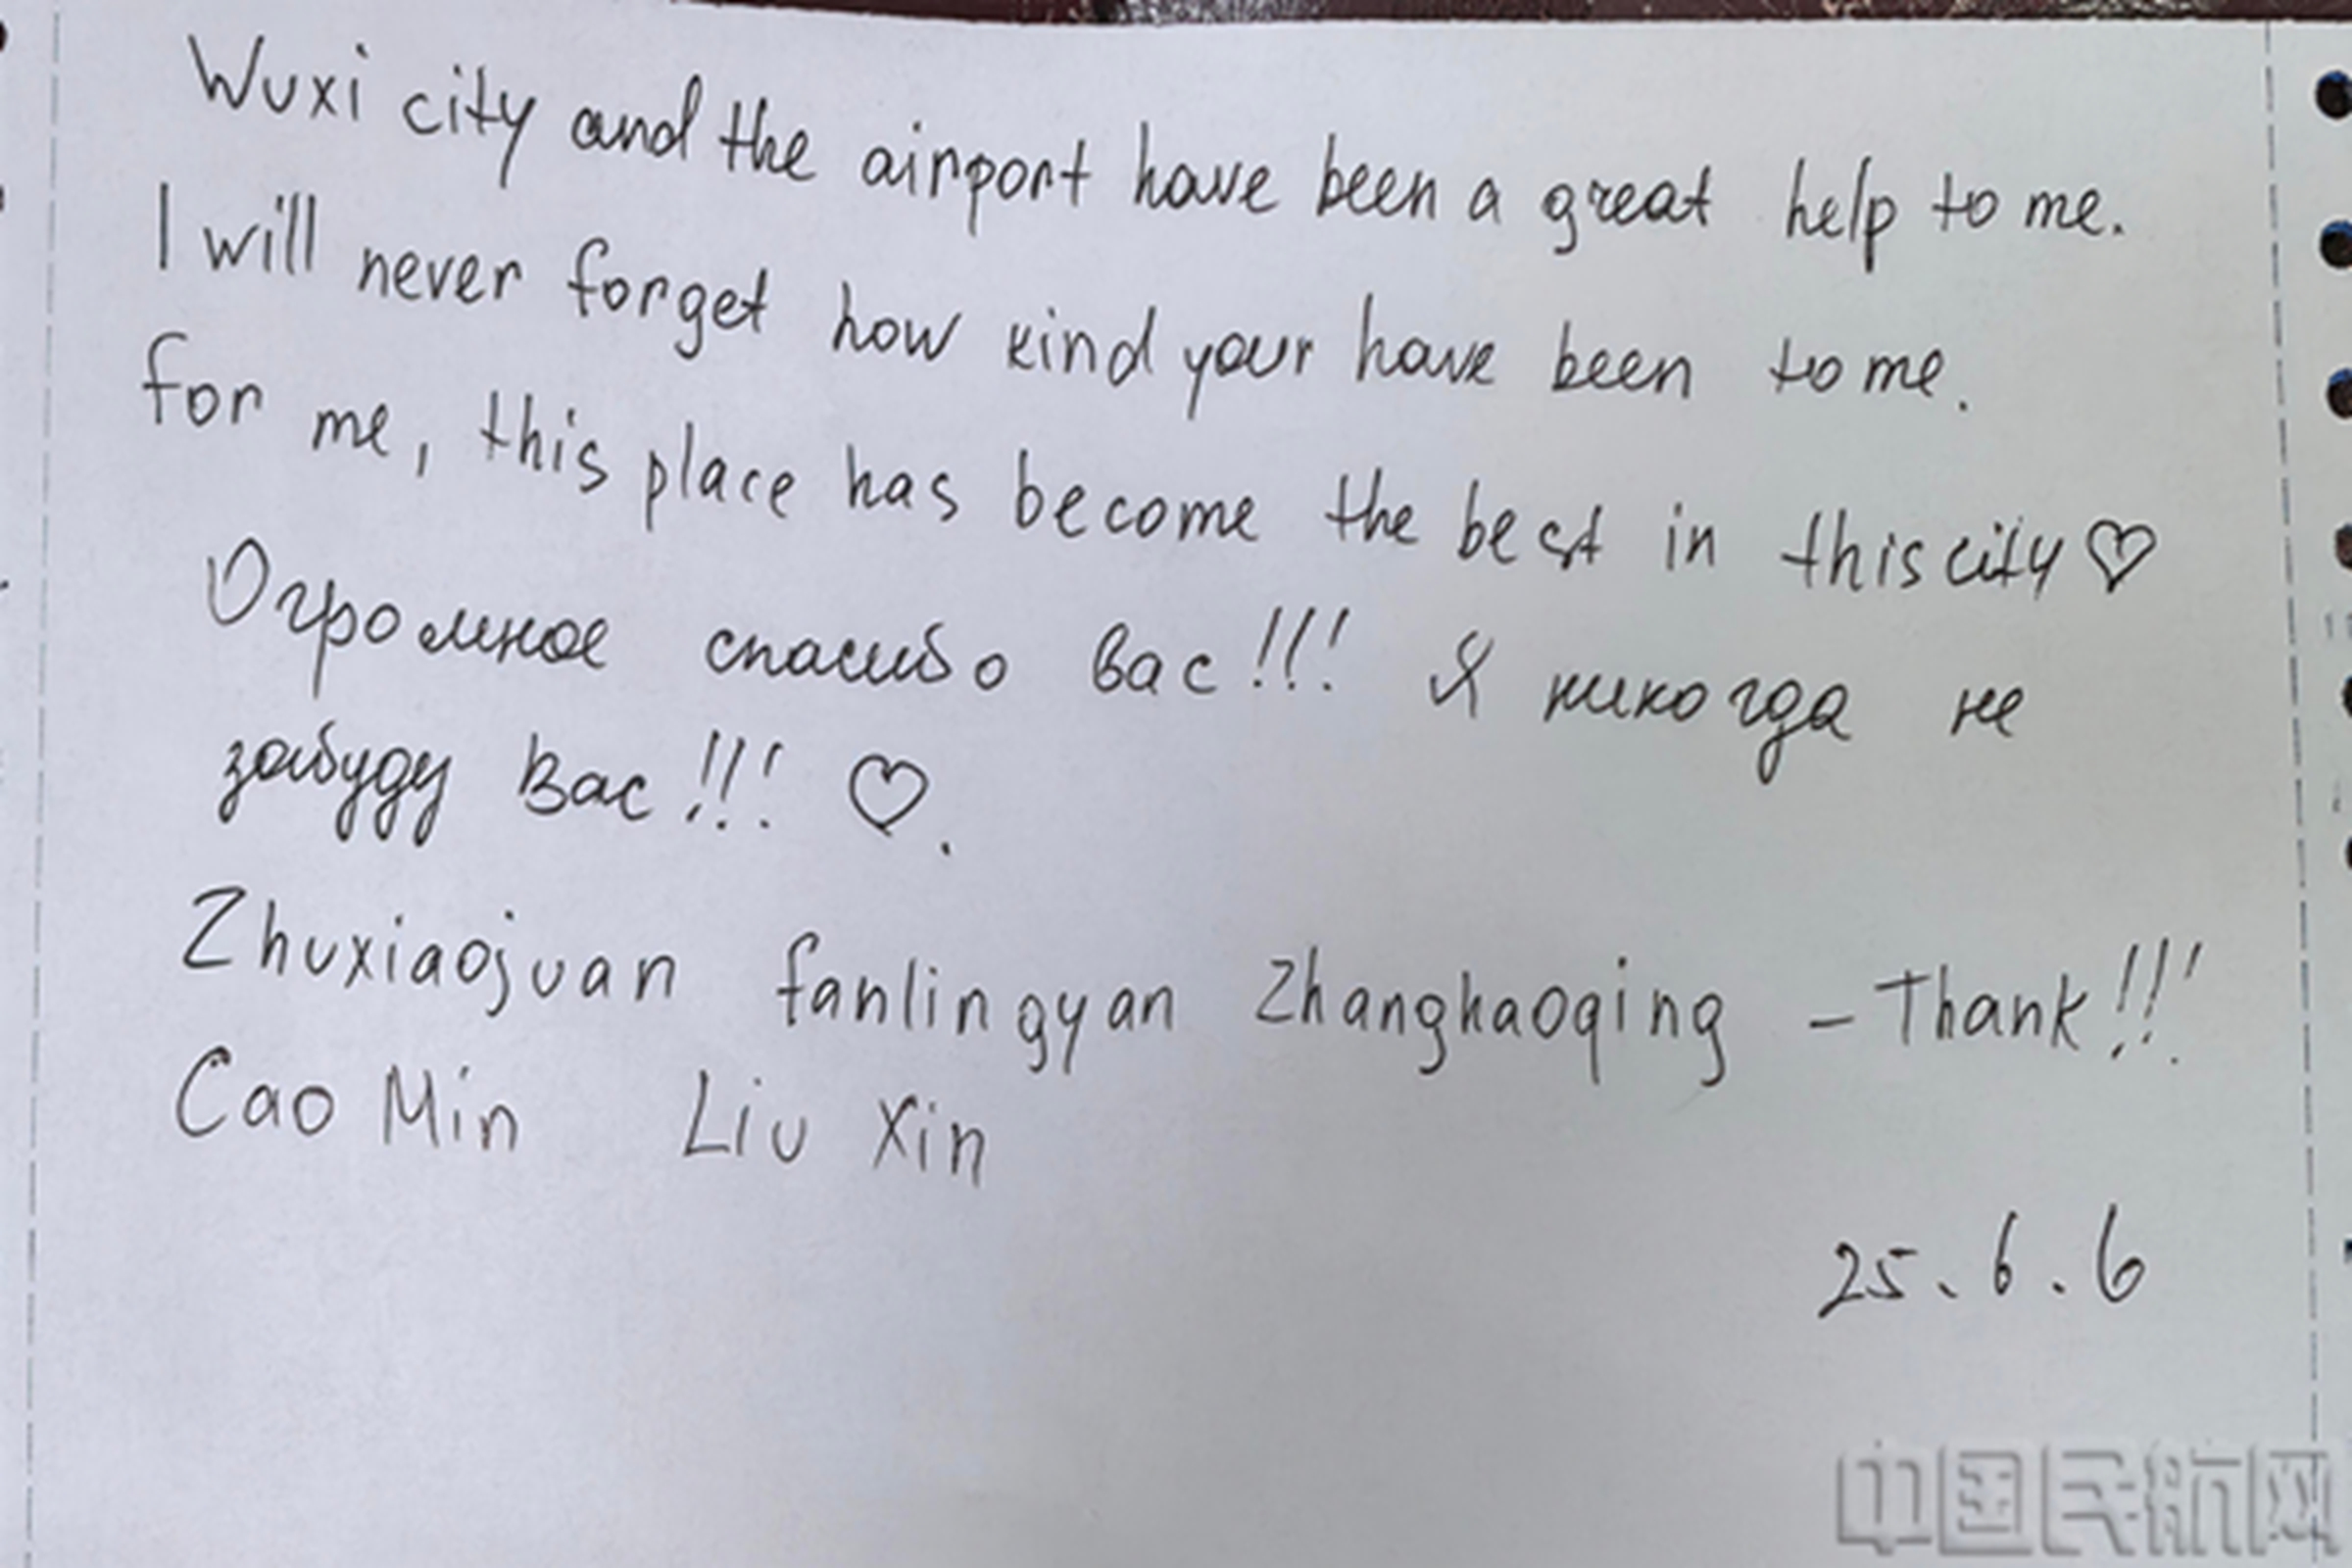 Wuxi city and the airport have been a great help to me.
I will never forget how kind your have been to me.
for me, this place has become the best in this city♡
Огромное спасибо вас!!! Я никогда не
забуду Вас!!! ♡.
Zhuxiaojuan fanlingyan Zhanghaoqing – Thank!!!
Cao Min Liu Xin
25.6.6
中国民航网